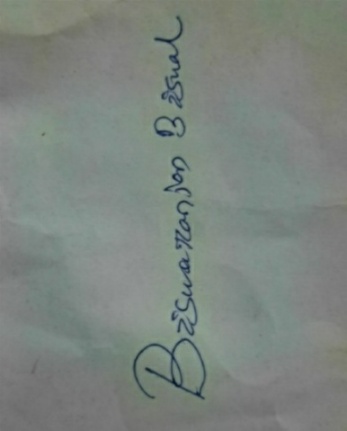 Biswaranjan Biswal